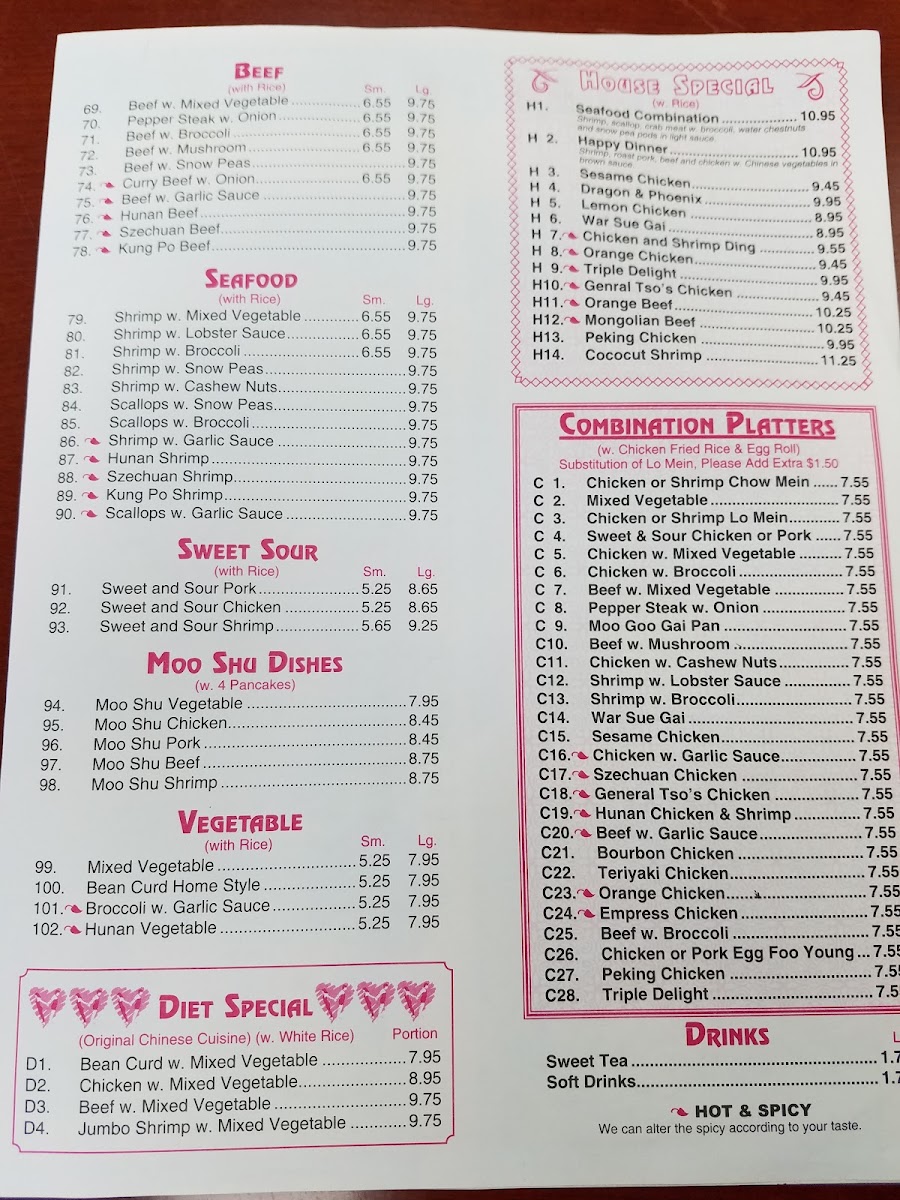 BEEF
(with Rice) Sm. Lg.
69. Beef w. Mixed Vegetable 6.55 9.75
70. Pepper Steak w. Onion 6.55 9.75
71. Beef w. Broccoli 6.55 9.75
72. Beef w. Mushroom 6.55 9.75
73. Beef w. Snow Peas 9.75
74. Curry Beef w. Onion 6.55 9.75
75. Beef w. Garlic Sauce 9.75
76. Hunan Beef 9.75
77. Szechuan Beef 9.75
78. Kung Po Beef 9.75
SEAFOOD
(with Rice) Sm. Lg.
79. Shrimp w. Mixed Vegetable 6.55 9.75
80. Shrimp w. Lobster Sauce 6.55 9.75
81. Shrimp w. Broccoli 6.55 9.75
82. Shrimp w. Snow Peas 9.75
83. Shrimp w. Cashew Nuts 9.75
84. Scallops w. Snow Peas 9.75
85. Scallops w. Broccoli 9.75
86. Shrimp w. Garlic Sauce 9.75
87. Hunan Shrimp 9.75
88. Szechuan Shrimp 9.75
89. Kung Po Shrimp 9.75
90. Scallops w. Garlic Sauce 9.75
SWEET SOUR
(with Rice) Sm. Lg.
91. Sweet and Sour Pork 5.25 8.65
92. Sweet and Sour Chicken 5.25 8.65
93. Sweet and Sour Shrimp 5.65 9.25
MOO SHU DISHES
(w. 4 Pancakes)
94. Moo Shu Vegetable 7.95
95. Moo Shu Chicken 8.45
96. Moo Shu Pork 8.45
97. Moo Shu Beef 8.75
98. Moo Shu Shrimp 8.75
VEGETABLE
(with Rice) Sm. Lg.
99. Mixed Vegetable 5.25 7.95
100. Bean Curd Home Style 5.25 7.95
101. Broccoli w. Garlic Sauce 5.25 7.95
102. Hunan Vegetable 5.25 7.95
DIET SPECIAL
(Original Chinese Cuisine) (w. White Rice) Portion
D1. Bean Curd w. Mixed Vegetable 7.95
D2. Chicken w. Mixed Vegetable 8.95
D3. Beef w. Mixed Vegetable 9.75
D4. Jumbo Shrimp w. Mixed Vegetable 9.75
HOUSE SPECIAL
(w. Rice)
H1. Seafood Combination 10.95
Shrimp, scallop, crab meat w. broccoli, water chestnuts
and snow pea pods in light sauce
H 2. Happy Dinner 10.95
Shrimp, roast pork, beef and chicken w. Chinese vegetables in
brown sauce
H 3. Sesame Chicken 9.45
H 4. Dragon & Phoenix 9.95
H 5. Lemon Chicken 8.95
H 6. War Sue Gai 8.95
H 7. Chicken and Shrimp Ding 9.55
H 8. Orange Chicken 9.45
H 9. Triple Delight 9.95
H10. Genral Tso's Chicken 9.45
H11. Orange Beef 10.25
H12. Mongolian Beef 10.25
H13. Peking Chicken 9.95
H14. Cococut Shrimp 11.25
COMBINATION PLATTERS
(w. Chicken Fried Rice & Egg Roll)
Substitution of Lo Mein, Please Add Extra $1.50
C 1. Chicken or Shrimp Chow Mein 7.55
C 2. Mixed Vegetable 7.55
C 3. Chicken or Shrimp Lo Mein 7.55
C 4. Sweet & Sour Chicken or Pork 7.55
C 5. Chicken w. Mixed Vegetable 7.55
C 6. Chicken w. Broccoli 7.55
C 7. Beef w. Mixed Vegetable 7.55
C 8. Pepper Steak w. Onion 7.55
C 9. Moo Goo Gai Pan 7.55
C10. Beef w. Mushroom 7.55
C11. Chicken w. Cashew Nuts 7.55
C12. Shrimp w. Lobster Sauce 7.55
C13. Shrimp w. Broccoli 7.55
C14. War Sue Gai 7.55
C15. Sesame Chicken 7.55
C16. Chicken w. Garlic Sauce 7.55
C17. Szechuan Chicken 7.55
C18. General Tso's Chicken 7.55
C19. Hunan Chicken & Shrimp 7.55
C20. Beef w. Garlic Sauce 7.55
C21. Bourbon Chicken 7.55
C22. Teriyaki Chicken 7.55
C23. Orange Chicken 7.55
C24. Empress Chicken 7.55
C25. Beef w. Broccoli 7.55
C26. Chicken or Pork Egg Foo Young 7.55
C27. Peking Chicken 7.5
C28. Triple Delight 7.5
DRINKS
Sweet Tea 1.7
Soft Drinks 1.7
HOT & SPICY
We can alter the spicy according to your taste.